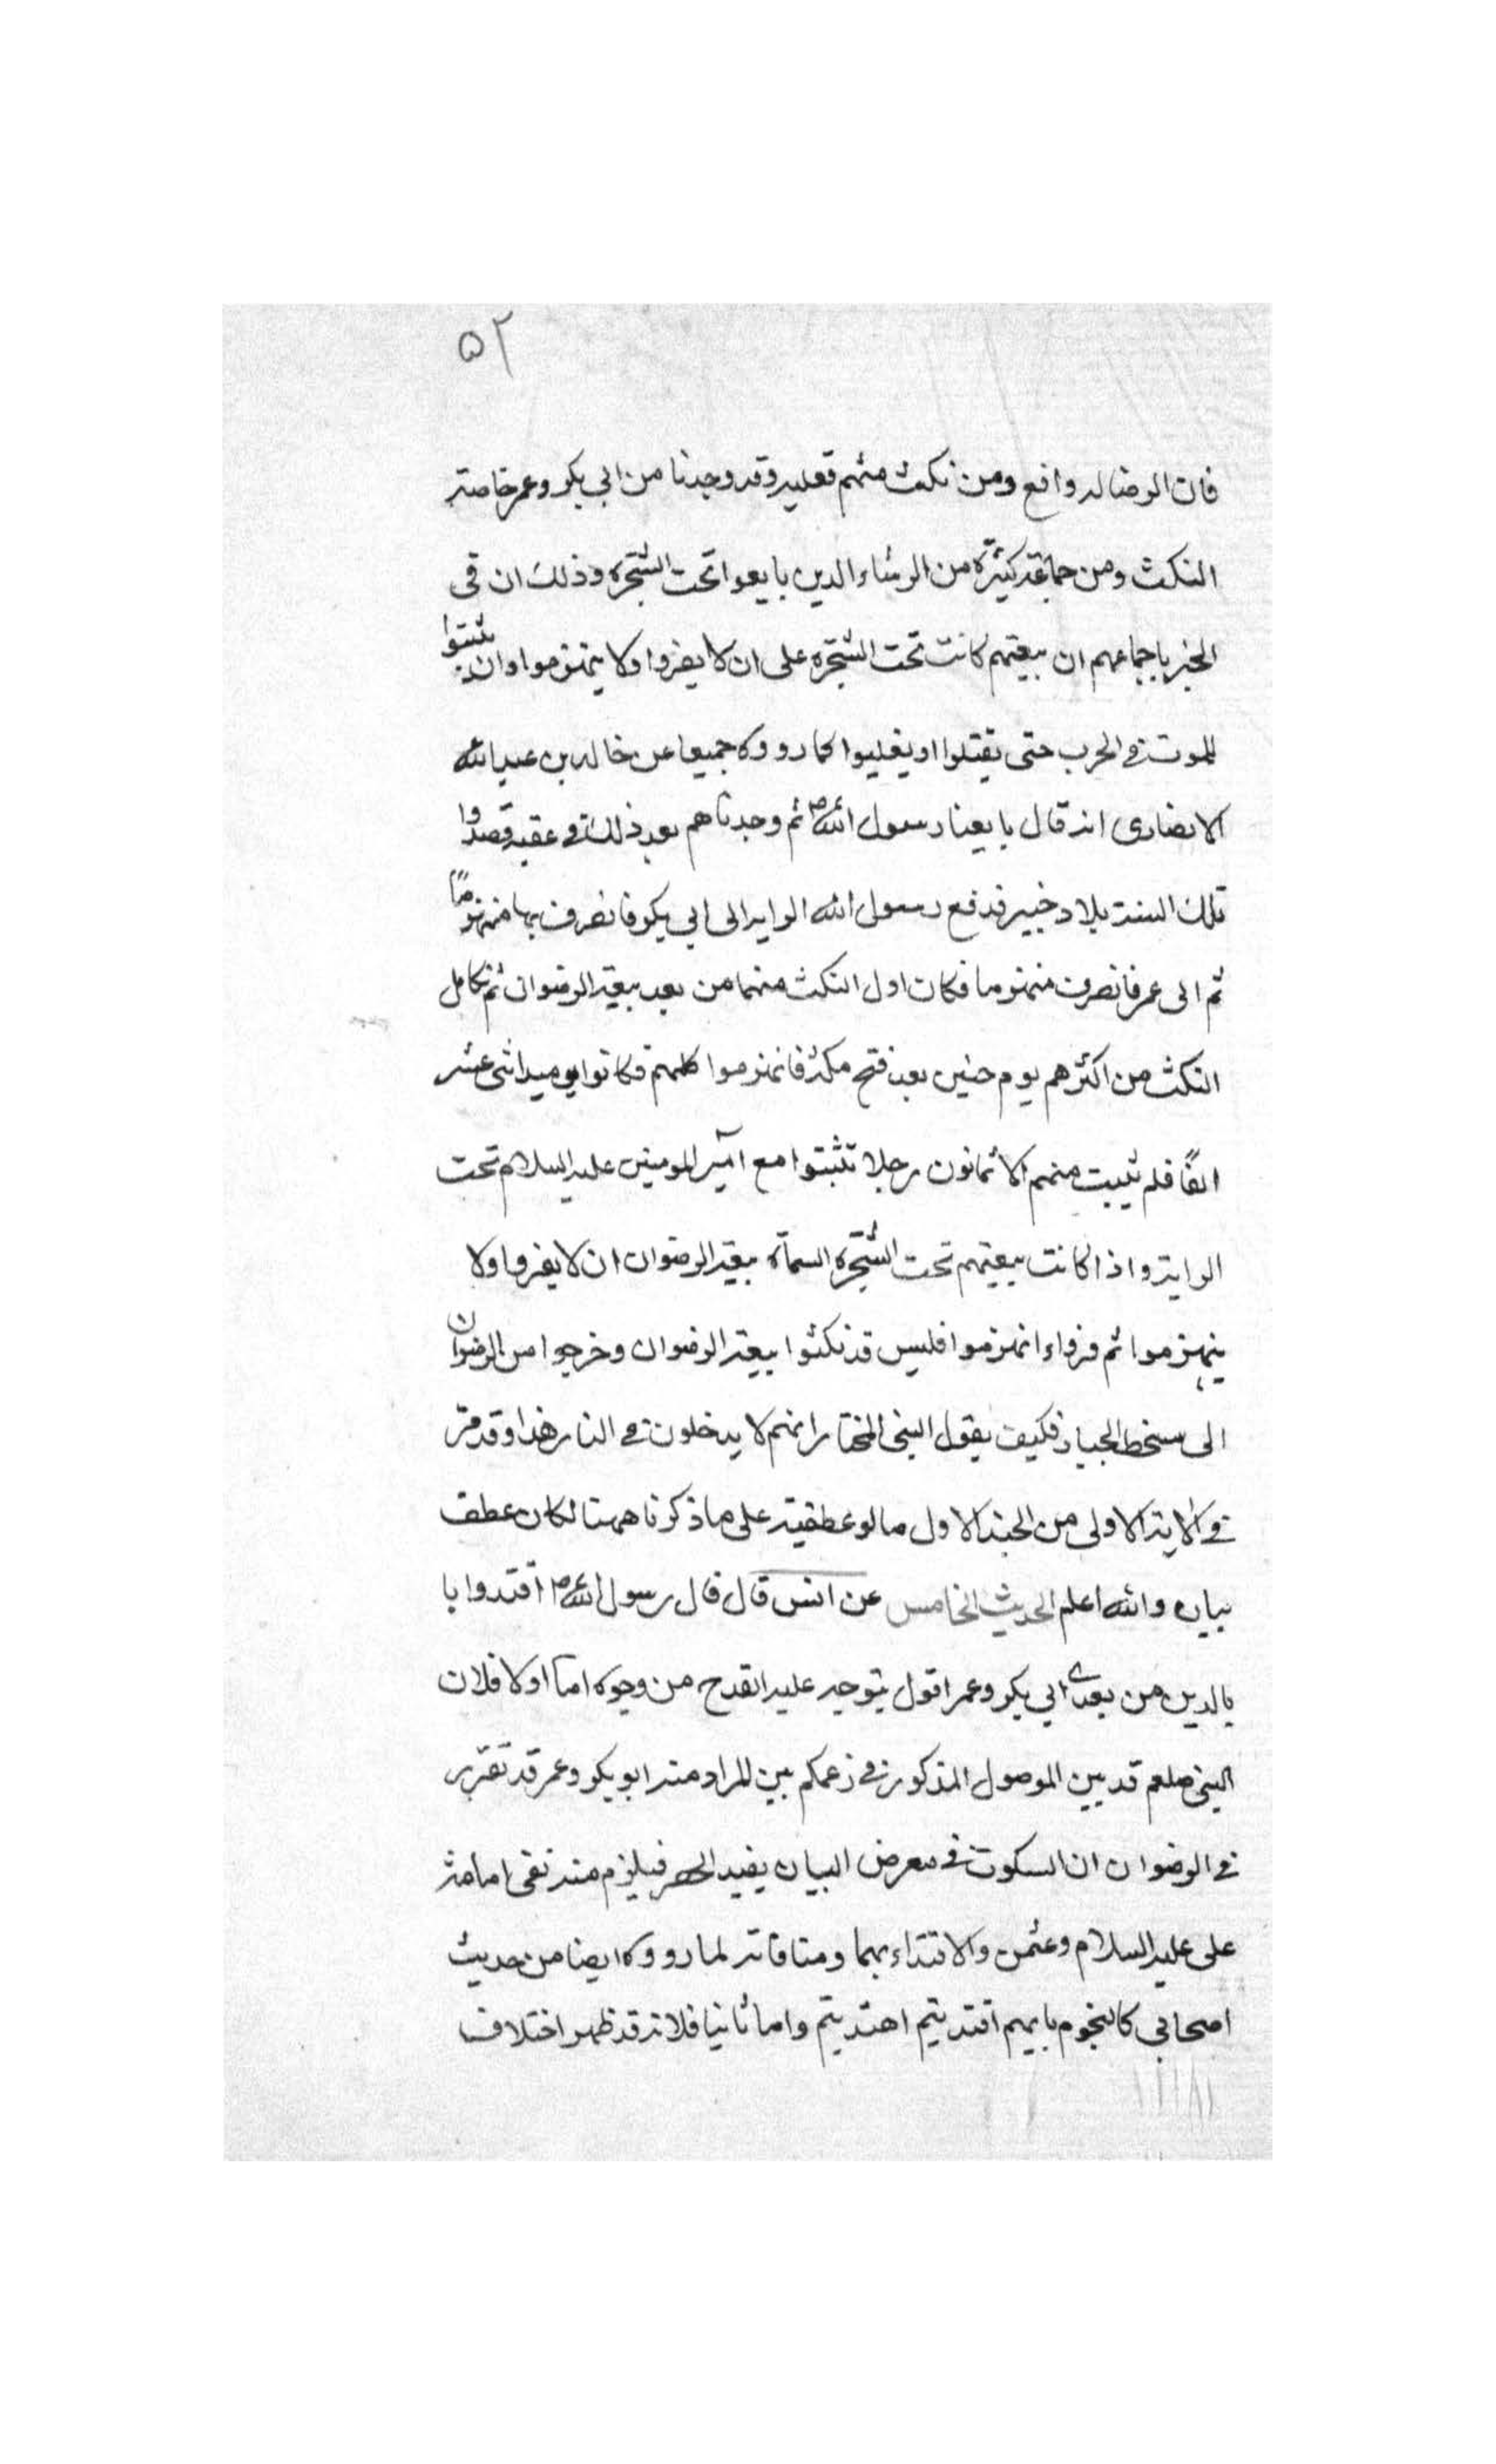 ۵۲
فان الرضا له واقع ومن نكث منهم فعليه وقد وجدنا من ابي بكر وعمر خاصة
النكث ومن جماعة كثيرة من الرؤساء الذين بايعوا تحت الشجرة وذلك ان في
الخبر باجماعهم ان بيعتهم كانت تحت الشجرة على ان لا يفروا ولا ينهزموا وان يثبتوا
للموت في الحرب حتى يقتلوا او يغلبوا كما رووه جميعا عن خالد بن عبد الله
الانصاري انه قال بايعنا رسول الله ص ثم وجدناهم بعد ذلك في عقبه قصدوا
تلك السنة بلاد خيبر فدفع رسول الله الراية الى ابي بكر فانصرف بها منهزمًا
ثم الى عمر فانصرف منهزما فكان اول النكث منهما من بعد بيعة الرضوان ثم تكامل
النكث من اكثرهم يوم حنين بعد فتح مكة فانهزموا كلهم فكانوا يوميذ اثنى عشر
الفًا فلم يثبت منهم الا ثمانون رجلا تثبتوا مع امير المومنين عليه السلام تحت
الراية واذا كانت بيعتهم تحت الشجرة المسماة بيعة الرضوان ان لا يفروا ولا
ينهزموا ثم فروا وانهزموا فليس قد نكثوا بيعة الرضوان وخرجوا من الرضوان
الى سخط الجبار فكيف يقول النبي المختار انهم لا يدخلون في النار هذا وقد مر
في الاية الاولى من الجند الاول ما لو عطفته على ما ذكرنا ههنا لكان عطف
بيان والله اعلم الحديث الخامس عن انس قال قال رسول الله ص اقتدوا با
بالذين من بعدي ابي بكر وعمر اقول يتوجه عليه القدح من وجوه اما اولا فلان
النبي صلعم قد بين الموصول المذكور في زعمكم بين المراد منه ابو بكر وعمر قد تقرر
في الرضوان ان السكوت في معرض البيان يفيد الحصر فيلزم منه نفي امامة
على عليه السلام وعثمن والاقتداء بهما ومنافاته لما رووه ايضا من حديث
اصحابي كالنجوم بايهم اقتديتم اهتديتم واما ثانيا فلانه قد ظهر اختلاف